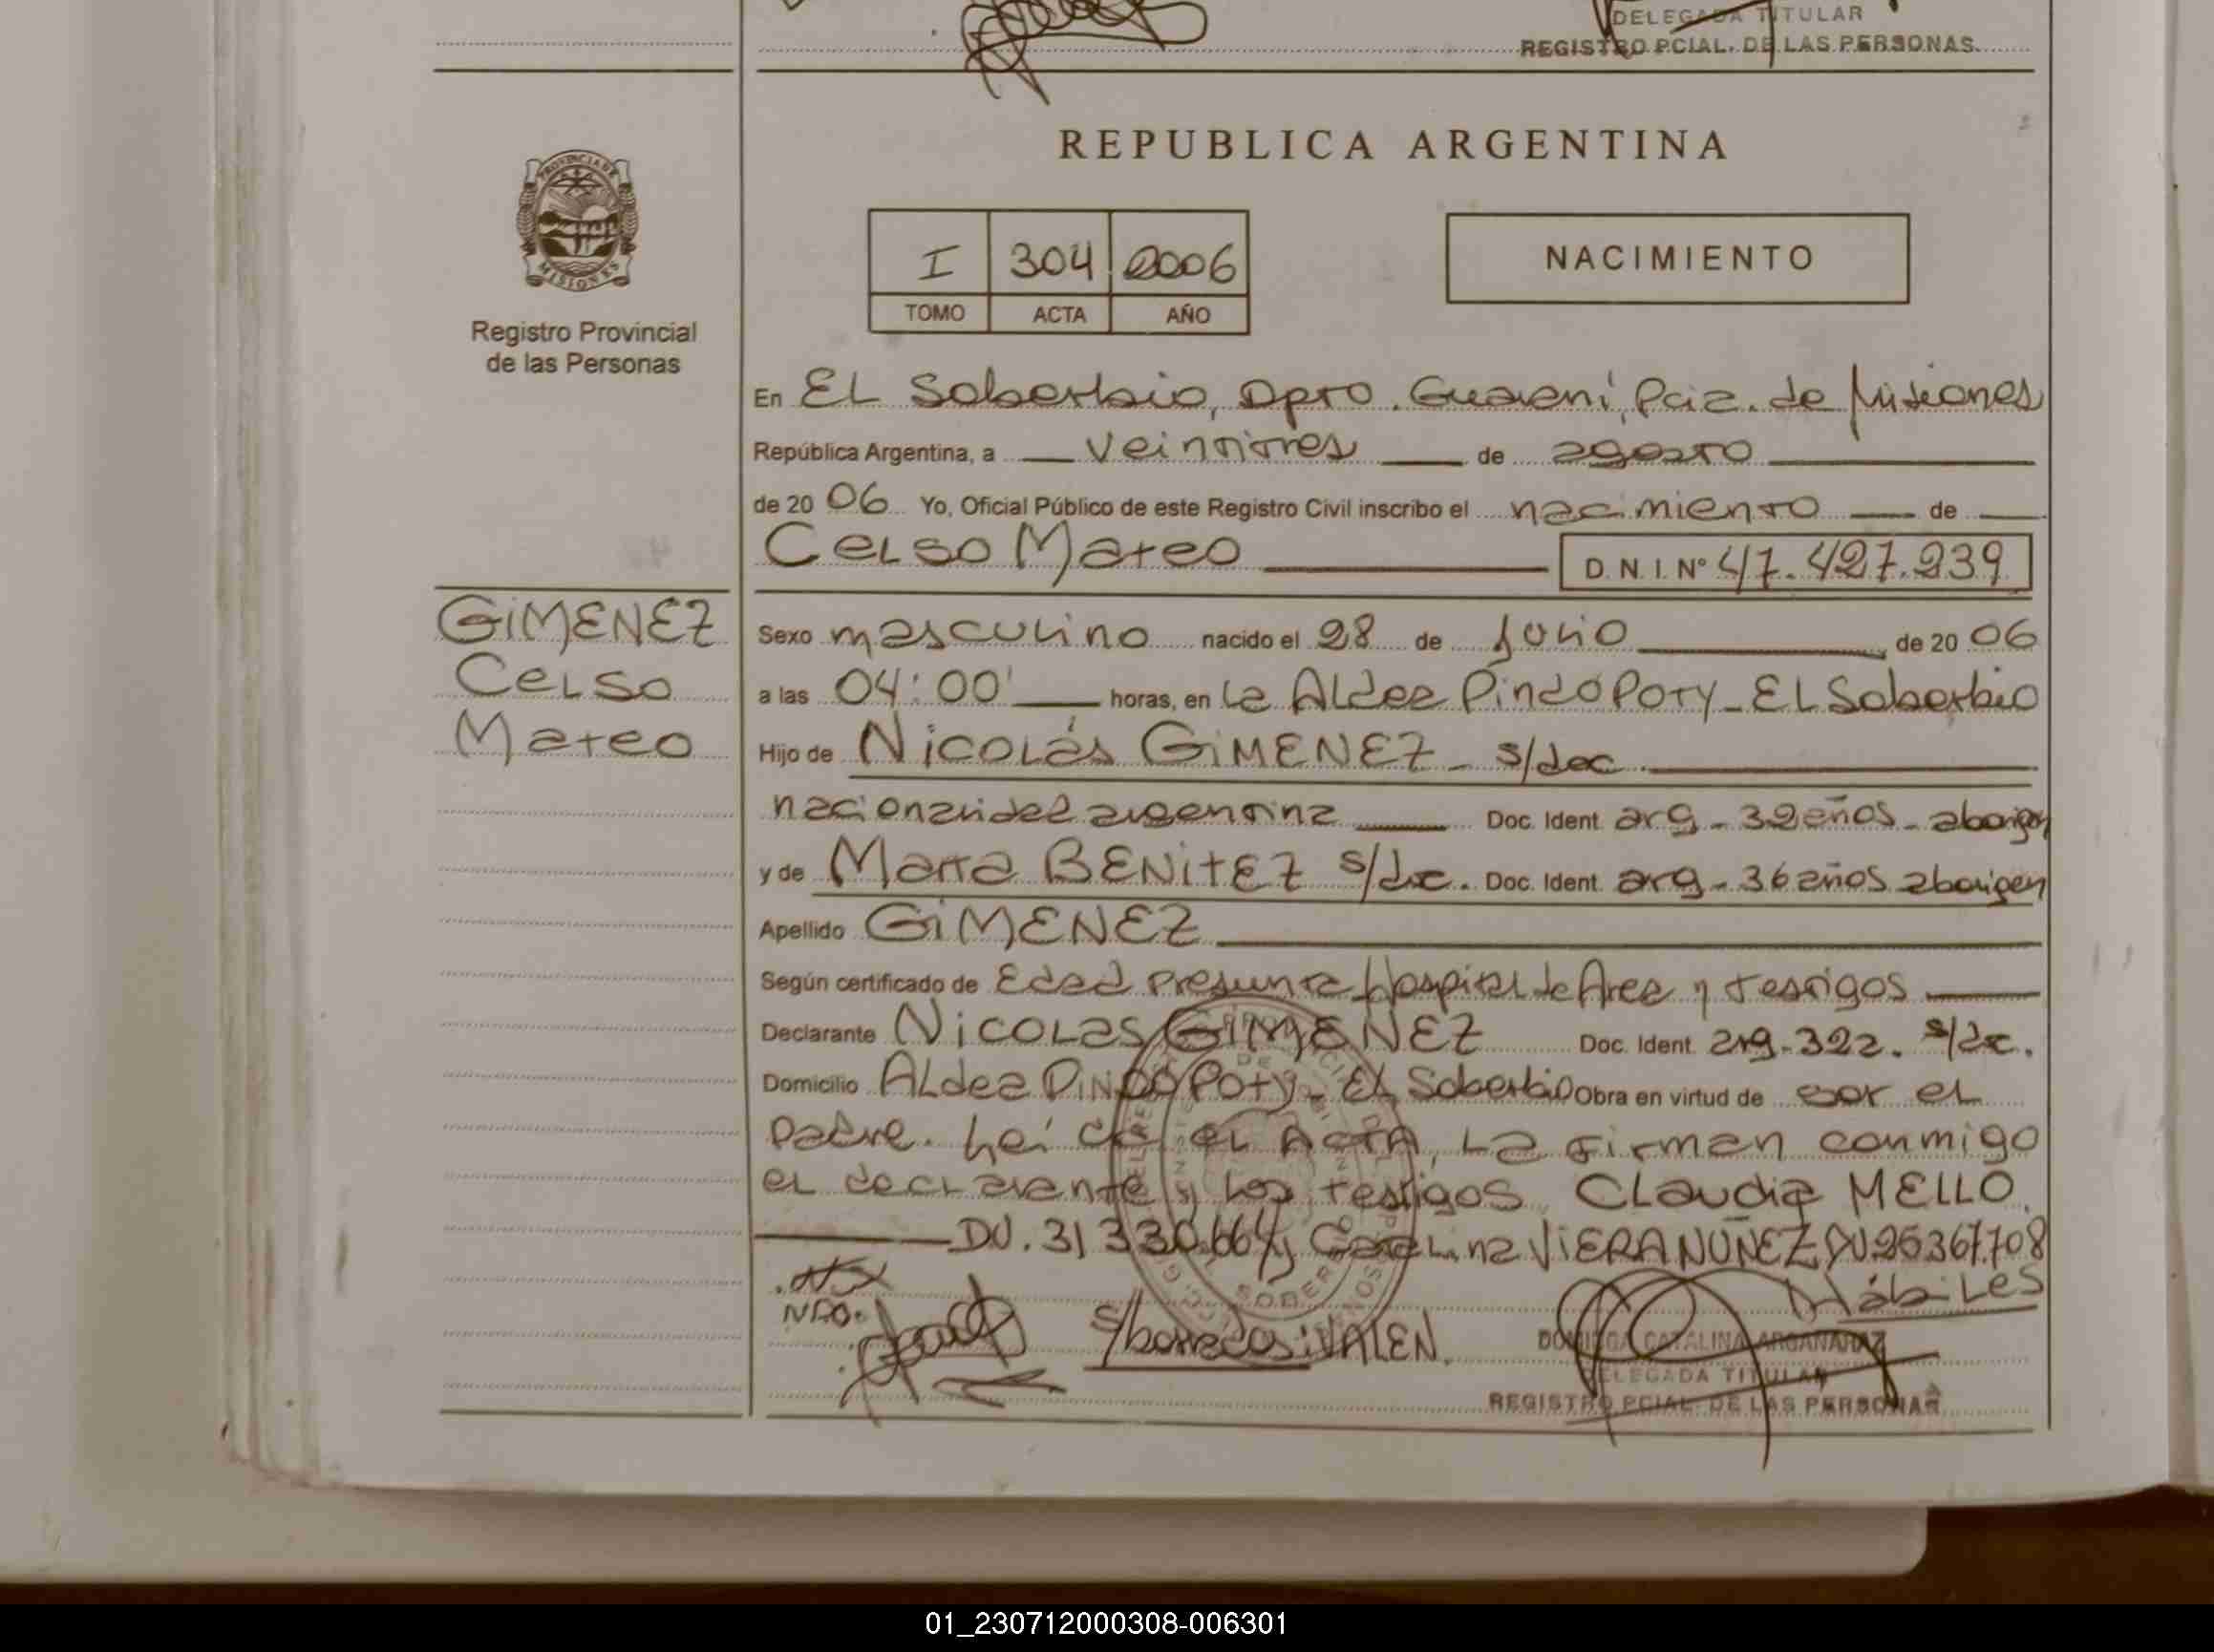 DELEGADA TITULAR
REGISTRO PCIAL. DE LAS PERSONAS
REPUBLICA ARGENTINA
PROVINCIA DE
MISIONES
Registro Provincial
de las Personas
I 304 2006
TOMO ACTA AÑO
NACIMIENTO
En EL Soberbio, Dpto. Guaraní, Pcia. de Misiones
República Argentina, a veintitres de agosto
de 20 06 Yo, Oficial Público de este Registro Civil inscribo el nacimiento de
Celso Mateo D.N.I. Nº 47.427.239
GIMENEZ
Celso
Mateo
Sexo masculino nacido el 28 de Julio de 20 06
a las 04:00' horas, en la Aldea Pindó Poty - EL Soberbio
Hijo de Nicolás GIMENEZ - s/doc
nacionalidad argentina Doc. Ident. arg - 32 años - aborigen
y de Marta BENITEZ s/doc. Doc. Ident. arg - 36 años aborigen
Apellido GIMENEZ
Según certificado de Edad presunta Hospital de Area y testigos
Declarante Nicolas GIMENEZ Doc. Ident. arg - 32a. s/doc.
Domicilio Aldea PINDO Poty - EL Soberbio Obra en virtud de ser el
padre. Leí el ACTA, La firman conmigo
el declarante y los testigos Claudia MELLO
DU. 31 330.664 y VIERA NUÑEZ DU 25367.708
Hábiles
S/borrados: VALEN.
DOMINGA CATALINA ARGAÑARAZ
DELEGADA TITULAR
REGISTRO PCIAL. DE LAS PERSONAS
01_230712000308-006301